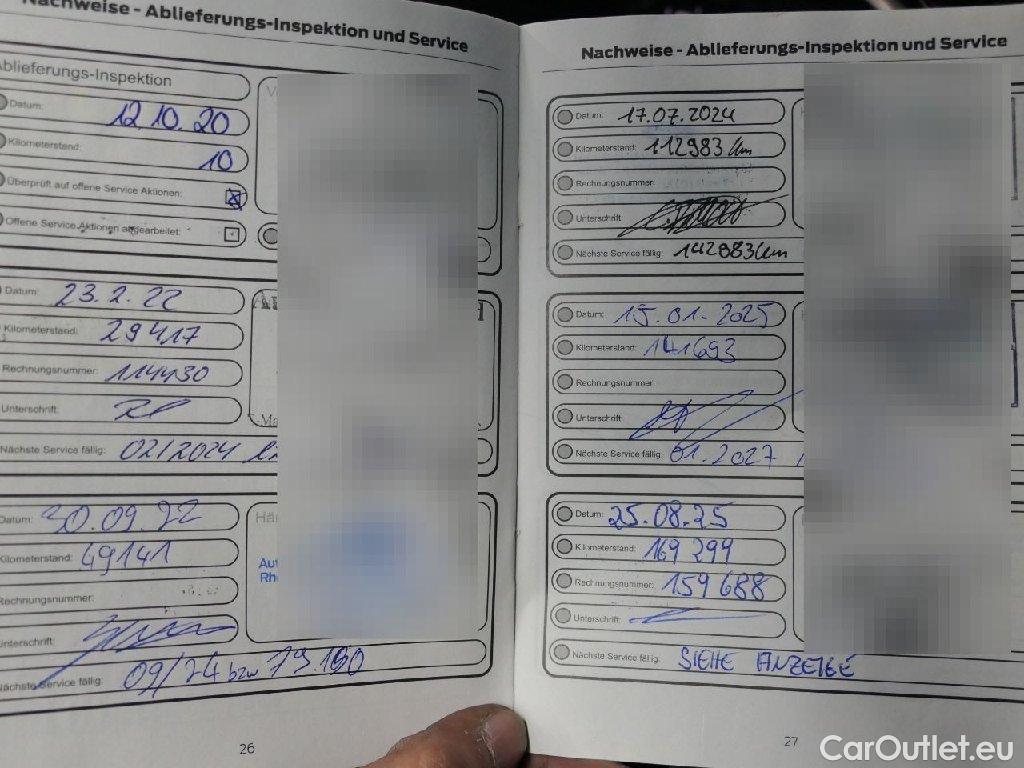 Nachweise - Ablieferungs-Inspektion und Service
Ablieferungs-Inspektion
Datum: 12.10.20
Kilometerstand: 10
Überprüft auf offene Service Aktionen:
Offene Service Aktionen abgearbeitet:
Datum: 23.2.22
Kilometerstand: 29417
Rechnungsnummer: 114430
Unterschrift:
Nächste Service fällig: 02/2024
Datum: 30.09.22
Kilometerstand: 49141
Rechnungsnummer:
Unterschrift:
Nächste Service fällig: 09/24 bzw 79.160
Hä
Aut
Rh
26
Nachweise - Ablieferungs-Inspektion und Service
Datum: 17.07.2024
Kilometerstand: 112983 km
Rechnungsnummer:
Unterschrift:
Nächste Service fällig: 142983 km
Datum: 15.01.2025
Kilometerstand: 141693
Rechnungsnummer:
Unterschrift:
Nächste Service fällig: 01.2027
Datum: 25.08.25
Kilometerstand: 169 299
Rechnungsnummer: 159688
Unterschrift:
Nächste Service fällig: SIEHE ANZEIGE
27
CarOutlet.eu